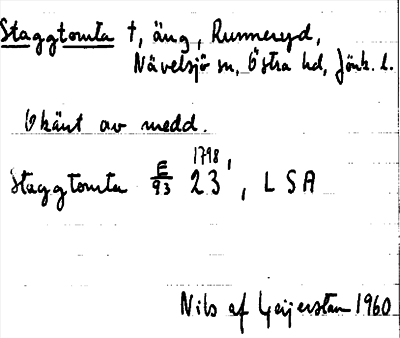 Staggtomta †, äng, Runneryd,
Nävelsjö sn, Östra hd, Jönk. l.
Okänt av medd.
Staggtomta E/93 23 1798, LSA
Nils af Geijerstam 1960